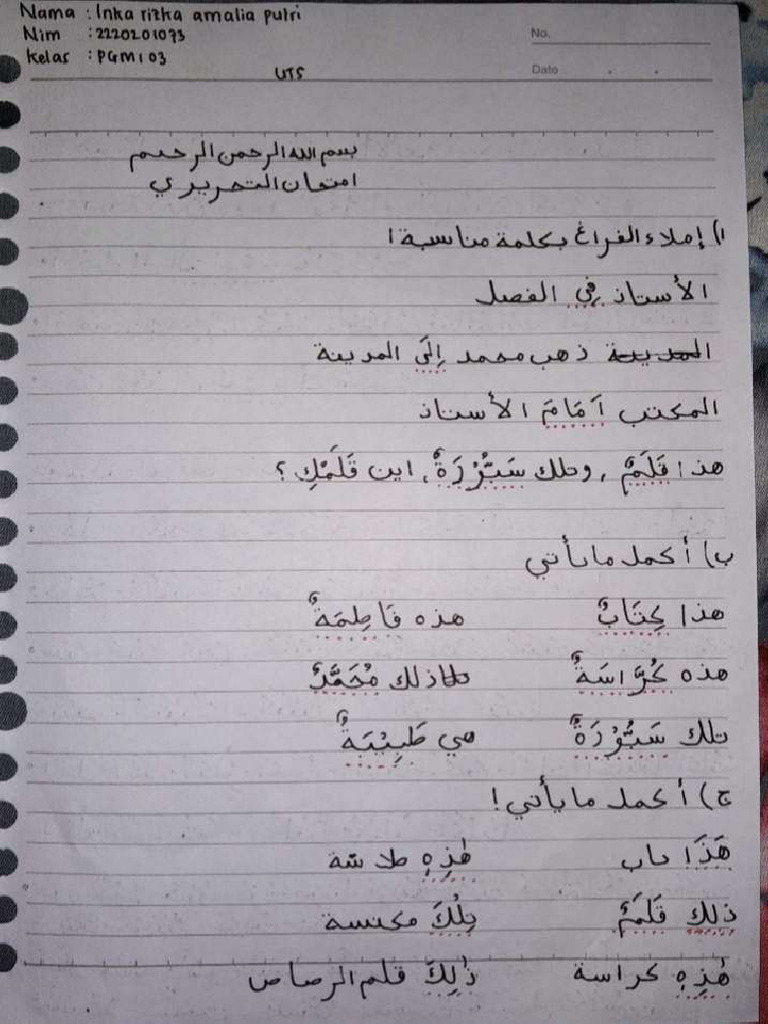 Nama : Inka rizka amalia putri
Nim : 2220201073
kelas : PGMI 03
No.
Date
UTS
بسم الله الرحمن الرحيم
امتحان التحريري
ا) إملاء الفراغ بكلمة مناسبة !
الأستاذ فِي الفصل
المدينة ذهب محمد إِلَى المدينة
المكتب اَمَامَ الأستاذ
هذا قَلَمٌ , وتلك سَبُّوْرَةٌ , اين قَلَمُكِ ؟
ب) أكمل ما يأتي
هذا كِتَابٌ هذه فَاطِمَةٌ
هذه كُرَّاسَةٌ ذلك مُحَمَّدٌ
تلك سَبُّوْرَةٌ هي طَبِيْبَةٌ
ج) أكمل ما يأتي !
هَذَا باب هٰذِهِ طلاسة
ذلك قَلَمٌ تِلْكَ مكنسة
هٰذِهِ كراسة ذٰلِكَ قلم الرصاص